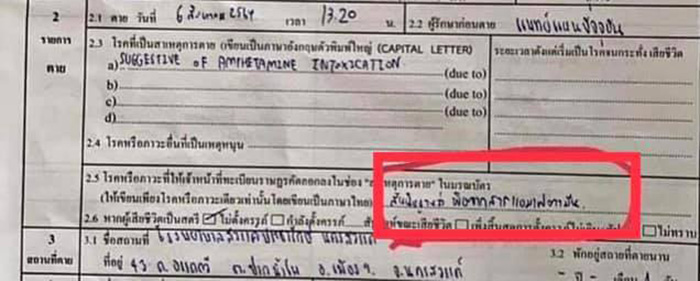 2 2.1 ตาย วันที่ 6 สิงหาคม 2564 เวลา 13.20 น. 2.2 ผู้รักษาก่อนตาย แพทย์แผนปัจจุบัน
รายการ
ตาย
2.3 โรคที่เป็นสาเหตุการตาย (เขียนเป็นภาษาอังกฤษตัวพิมพ์ใหญ่ (CAPITAL LETTER) ระยะเวลาตั้งแต่เริ่มเป็นโรคจนกระทั่งเสียชีวิต
a) SUGGESTIVE OF AMPHETAMINE INTOXICATION (due to)
b) (due to)
c) (due to)
d)
2.4 โรคหรือภาวะอื่นที่เป็นเหตุหนุน
2.5 โรคหรือภาวะที่ให้เจ้าหน้าที่ทะเบียนราษฎรคัดลอกลงในช่อง "สาเหตุการตาย" ในมรณบัตร
(ให้เขียนเพียงโรคหรือภาวะเดียวเท่านั้นโดยเขียนเป็นภาษาไทย) สันนิษฐานว่า พิษจากสารแอมเฟตามีน
2.6 หากผู้เสียชีวิตเป็นสตรี ไม่ตั้งครรภ์ กำลังตั้งครรภ์ ไม่ทราบ
3 3.1 ชื่อสถานที่ โรงพยาบาลสวรรค์ประชารักษ์ นครสวรรค์ 3.2 พักอยู่สถานที่ตายนาน
สถานที่ตาย ที่อยู่ 43 ถ.อรรถกวี ต.ปากน้ำโพ อ.เมืองฯ จ.นครสวรรค์ - ปี - เดือน